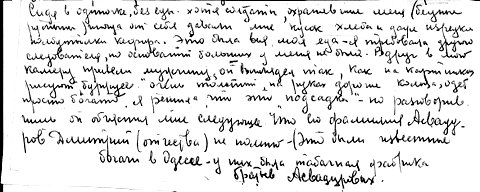 Сидя в одиночке, без еды - хотя солдаты, охранявшие меня (
рускими, иногда от себя давали мне кусок хлеба и даже изредка
полбутылки кефира. Это была вся моя еда - я требовала другого
следователя, но оставался больших у меня не был. Вдруг в мою
камеру привели мужчину, он выглядел так, как на картинках
рисуют буржуев: очень толстый, на руках дорогие кольца, одет
просто богато, я решила что это "подсадка" - но разговорив
шись он объяснил мне следующее что его фамилия Асваду-
ров Дмитрий (отчества) не помню - (Это были известные
богачи в Одессе - у них была табачная фабрика
братьев Асвадуровых.